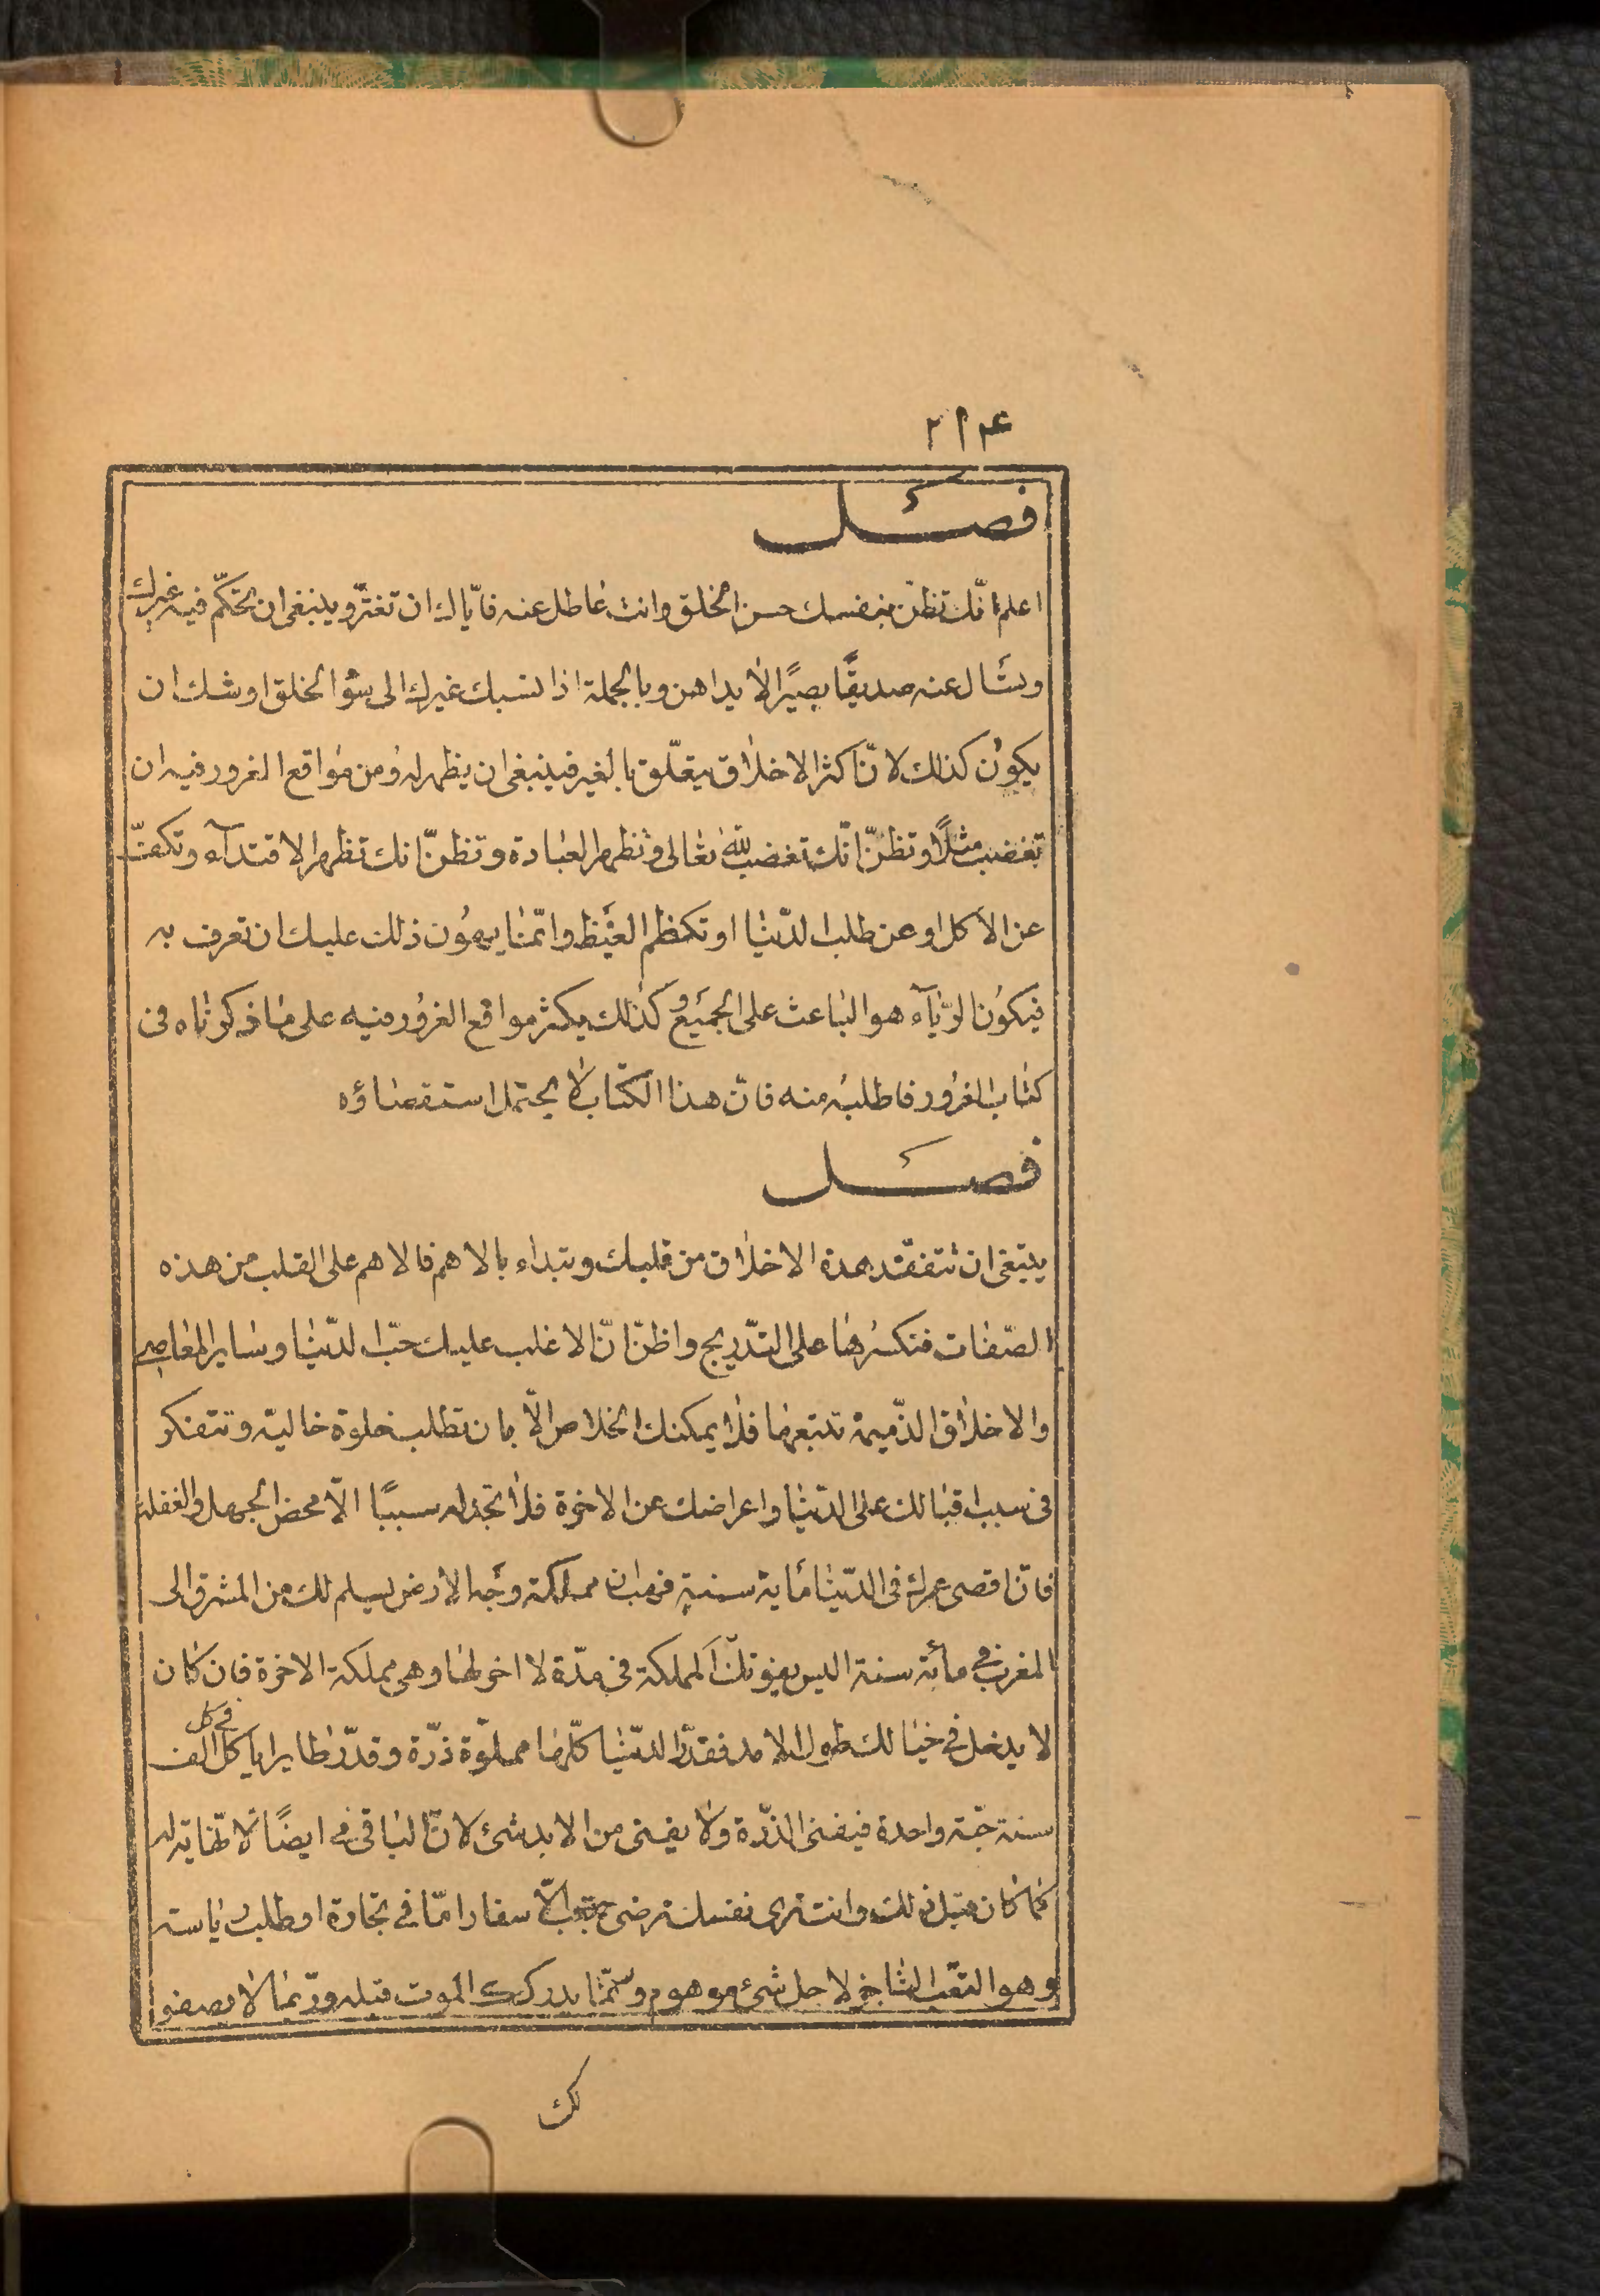 ٢١٤
فصل
اعلم انّك تظنّ بنفسك حسن الخلق وانت عاطل عنه فايّاك ان تغترّ وينبغى ان تحكّم فيه غيرك
وتسأل عنه صديقًا بصيرًا لا يداهن وبالجملة اذا نسبك غيرك الى سؤ الخلق اوشك ان
يكون كذلك لانّ اكثر الاخلاق يتعلّق بالغير فينبغى ان يظهر له ومن مواقع الغرور فيه ان
تغضب مثلًا وتظنّ انّك تغضب للّه تعالى وتظهر العبادة وتظنّ انك تظهر الاقتدآء وتكفّ
عن الاكل او عن طلب الدّنيا او تكظم الغيظ وانّما يهون ذلك عليك ان تعرف به
فيكون الرّيآء هو الباعث على الجميع وكذلك يكثر مواقع الغرور فيه على ما ذكرناه فى
كتاب الغرور فاطلبه منه فانّ هذا الكتاب لا يحتمل استقصاؤه
فصل
ينبغى ان تتفقّد بهذة الاخلاق من قلبك وتبداء بالاهم فالاهم على القلب من هذه
الصّفات فتكسرها على التدّريج واظنّ انّ الاغلب عليك حبّ الدّنيا وساير المعاصى
والاخلاق الذّميمة تتبعها فلا يمكنك الخلاص الّا بان تطلب خلوة خالية وتتفكر
فى سبب اقبالك على الدّنيا واعراضك عن الاخرة فلا تجد له سببًا الّا محض الجهل والغفلة
فانّ اقصى عمرك فى الدّنيا مأية سنة فهب ان مملكة وجه الارض يسلم لك من المشرق الى
المغرب فى مأية سنة اليس يفوتك المملكة فى مدّة لا اخر لها وهى مملكة الاخرة فان كان
لا يدخل فى خيالك طول الامد فقدّر الدّنيا كلّها مملوّة ذرّة وقدّر طايرا ياكل فى كل الف
سنة حبّة واحدة فيفنى الذرّة ولا يفنى من الابد شئ لانّ الباقى ايضًا لا نهاية له
كما كان قبل ذلك وانت ترى نفسك ترضى بتعب الاسفار امّا فى تجارة او طلب رياسة
وهو التعب الناجز لاجل شئ موهوم وربّما يدركك الموت قبله وربّما لا يصفوا
لك